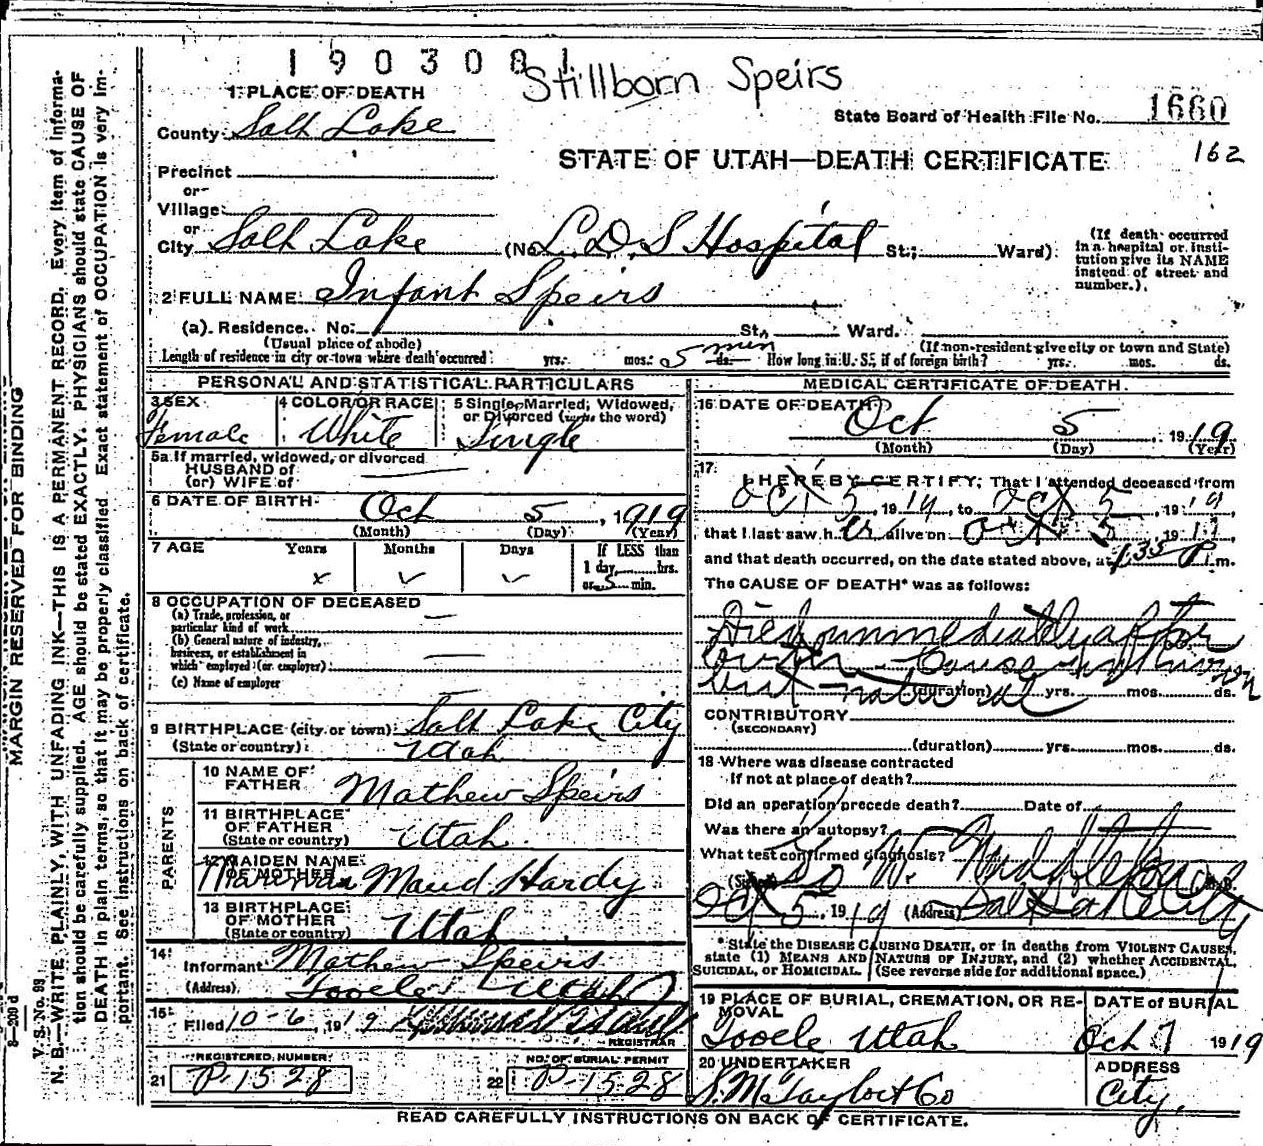 1903081
Stillborn Speirs
1 PLACE OF DEATH
State Board of Health File No. 1660
County Salt Lake
STATE OF UTAH—DEATH CERTIFICATE
162
Precinct
or
Village
or
City Salt Lake (No. L.D.S Hospital St.; Ward)
(If death occurred in a hospital or institution give its NAME instead of street and number.)
2 FULL NAME Infant Speirs
(a). Residence. No. St., Ward.
(Usual place of abode) (If non-resident give city or town and State)
Length of residence in city or town where death occurred yrs. mos. 5 ds. min How long in U. S., if of foreign birth? yrs. mos. ds.
PERSONAL AND STATISTICAL PARTICULARS
3 SEX Female
4 COLOR OR RACE White
5 Single, Married, Widowed, or Divorced (write the word) Single
5a If married, widowed, or divorced
HUSBAND of
(or) WIFE of
6 DATE OF BIRTH Oct 5, 1919
(Month) (Day) (Year)
7 AGE Years Months Days If LESS than 1 day, hrs. or 5 min.
8 OCCUPATION OF DECEASED
(a) Trade, profession, or particular kind of work
(b) General nature of industry, business, or establishment in which employed (or employer)
(c) Name of employer
9 BIRTHPLACE (city or town) Salt Lake City
(State or country) Utah
PARENTS
10 NAME OF FATHER Mathew Speirs
11 BIRTHPLACE OF FATHER (State or country) Utah
12 MAIDEN NAME OF MOTHER Maud Hardy
13 BIRTHPLACE OF MOTHER (State or country) Utah
14 Informant Mathew Speirs
(Address) Tooele Utah
15 Filed 10-6, 1919
REGISTRAR
REGISTERED NUMBER
21 P-1528
NO. OF BURIAL PERMIT
22 P-1528
MEDICAL CERTIFICATE OF DEATH
16 DATE OF DEATH Oct 5, 1919
(Month) (Day) (Year)
17. I HEREBY CERTIFY, That I attended deceased from
Oct 5, 1919, to Oct 5, 1919,
that I last saw her alive on Oct 5, 1919,
and that death occurred, on the date stated above, at 1:35 P.m.
The CAUSE OF DEATH* was as follows:
Died immediately after
birth - Cause unknown
but - natural
(duration) yrs. mos. ds.
CONTRIBUTORY
(SECONDARY)
(duration) yrs. mos. ds.
18 Where was disease contracted
If not at place of death?
Did an operation precede death? Date of
Was there an autopsy?
What test confirmed diagnosis?
(Signed) Geo W. Middleton M.D.
Oct 5, 1919 (Address) Salt Lake City
* State the DISEASE CAUSING DEATH, or in deaths from VIOLENT CAUSES, state (1) MEANS AND NATURE OF INJURY, and (2) whether ACCIDENTAL, SUICIDAL, or HOMICIDAL. (See reverse side for additional space.)
19 PLACE OF BURIAL, CREMATION, OR REMOVAL Tooele Utah
DATE OF BURIAL Oct 7 1919
20 UNDERTAKER S. M. Taylor & Co
ADDRESS City
READ CAREFULLY INSTRUCTIONS ON BACK OF CERTIFICATE.
MARGIN RESERVED FOR BINDING
N. B.—WRITE PLAINLY, WITH UNFADING INK—THIS IS A PERMANENT RECORD. Every item of information should be carefully supplied. AGE should be stated EXACTLY. PHYSICIANS should state CAUSE OF DEATH in plain terms, so that it may be properly classified. Exact statement of OCCUPATION is very important. See instructions on back of certificate.
V. S. No. 93